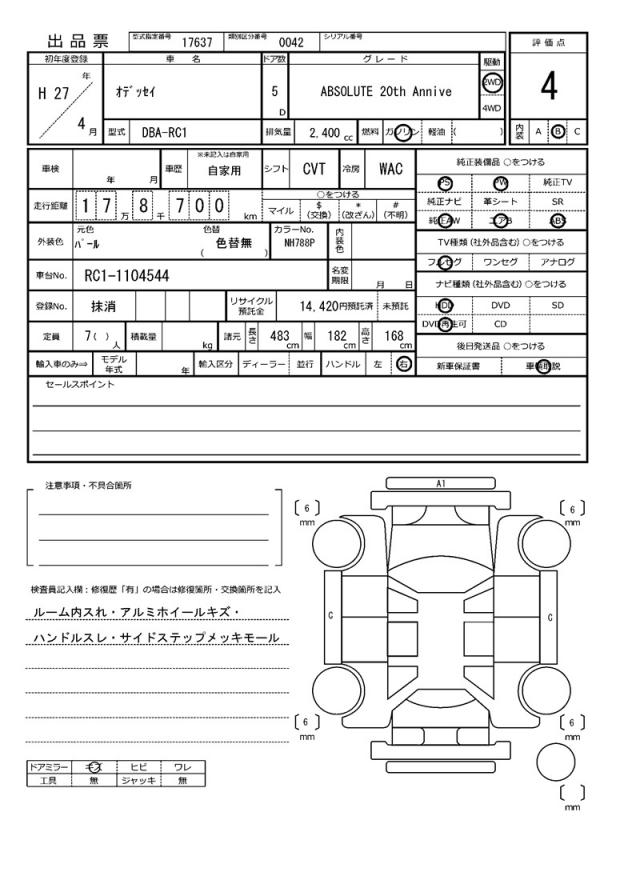 出品票 型式指定番号 17637 類別区分番号 0042 シリアル番号
初年度登録 車名 ドア数 グレード 駆動 評価点
H 27 年 4 月 オデッセイ 5 D ABSOLUTE 20th Annive 2WD 4WD 4
型式 DBA-RC1 排気量 2,400 cc 燃料 ガソリン 軽油 ( ) 内装 A B C
車検 年 月 車歴 ※未記入は自家用 自家用 シフト CVT 冷房 WAC
走行距離 1 7 万 8 千 7 0 0 km ○をつける マイル $ (交換) * (改ざん) # (不明)
外装色 元色 パール 色替 ( 色替無 ) カラーNo. NH788P 内装色
車台No. RC1-1104544 名変期限 月 日
登録No. 抹消 リサイクル預託金 14,420円預託済 未預託
定員 7( ) 人 積載量 kg 諸元 長さ 483 cm 幅 182 cm 高さ 168 cm
輸入車のみ⇒ モデル年式 年 輸入区分 ディーラー 並行 ハンドル 左 右
純正装備品 ○をつける
PS PW 純正TV
純正ナビ 革シート SR
純正AW エアB ABS
TV種類 (社外品含む) ○をつける
フルセグ ワンセグ アナログ
ナビ種類 (社外品含む) ○をつける
HDD DVD SD
DVD再生可 CD
後日発送品 ○をつける
新車保証書 車輌取説
セールスポイント
注意事項・不具合箇所
検査員記入欄：修復歴「有」の場合は修復箇所・交換箇所を記入
ルーム内スれ・アルミホイールキズ・
ハンドルスレ・サイドステップメッキモール
ドアミラー キズ ヒビ ワレ
工具 無 ジャッキ 無
A1
6 mm
6 mm
C
C
6 mm
6 mm
mm